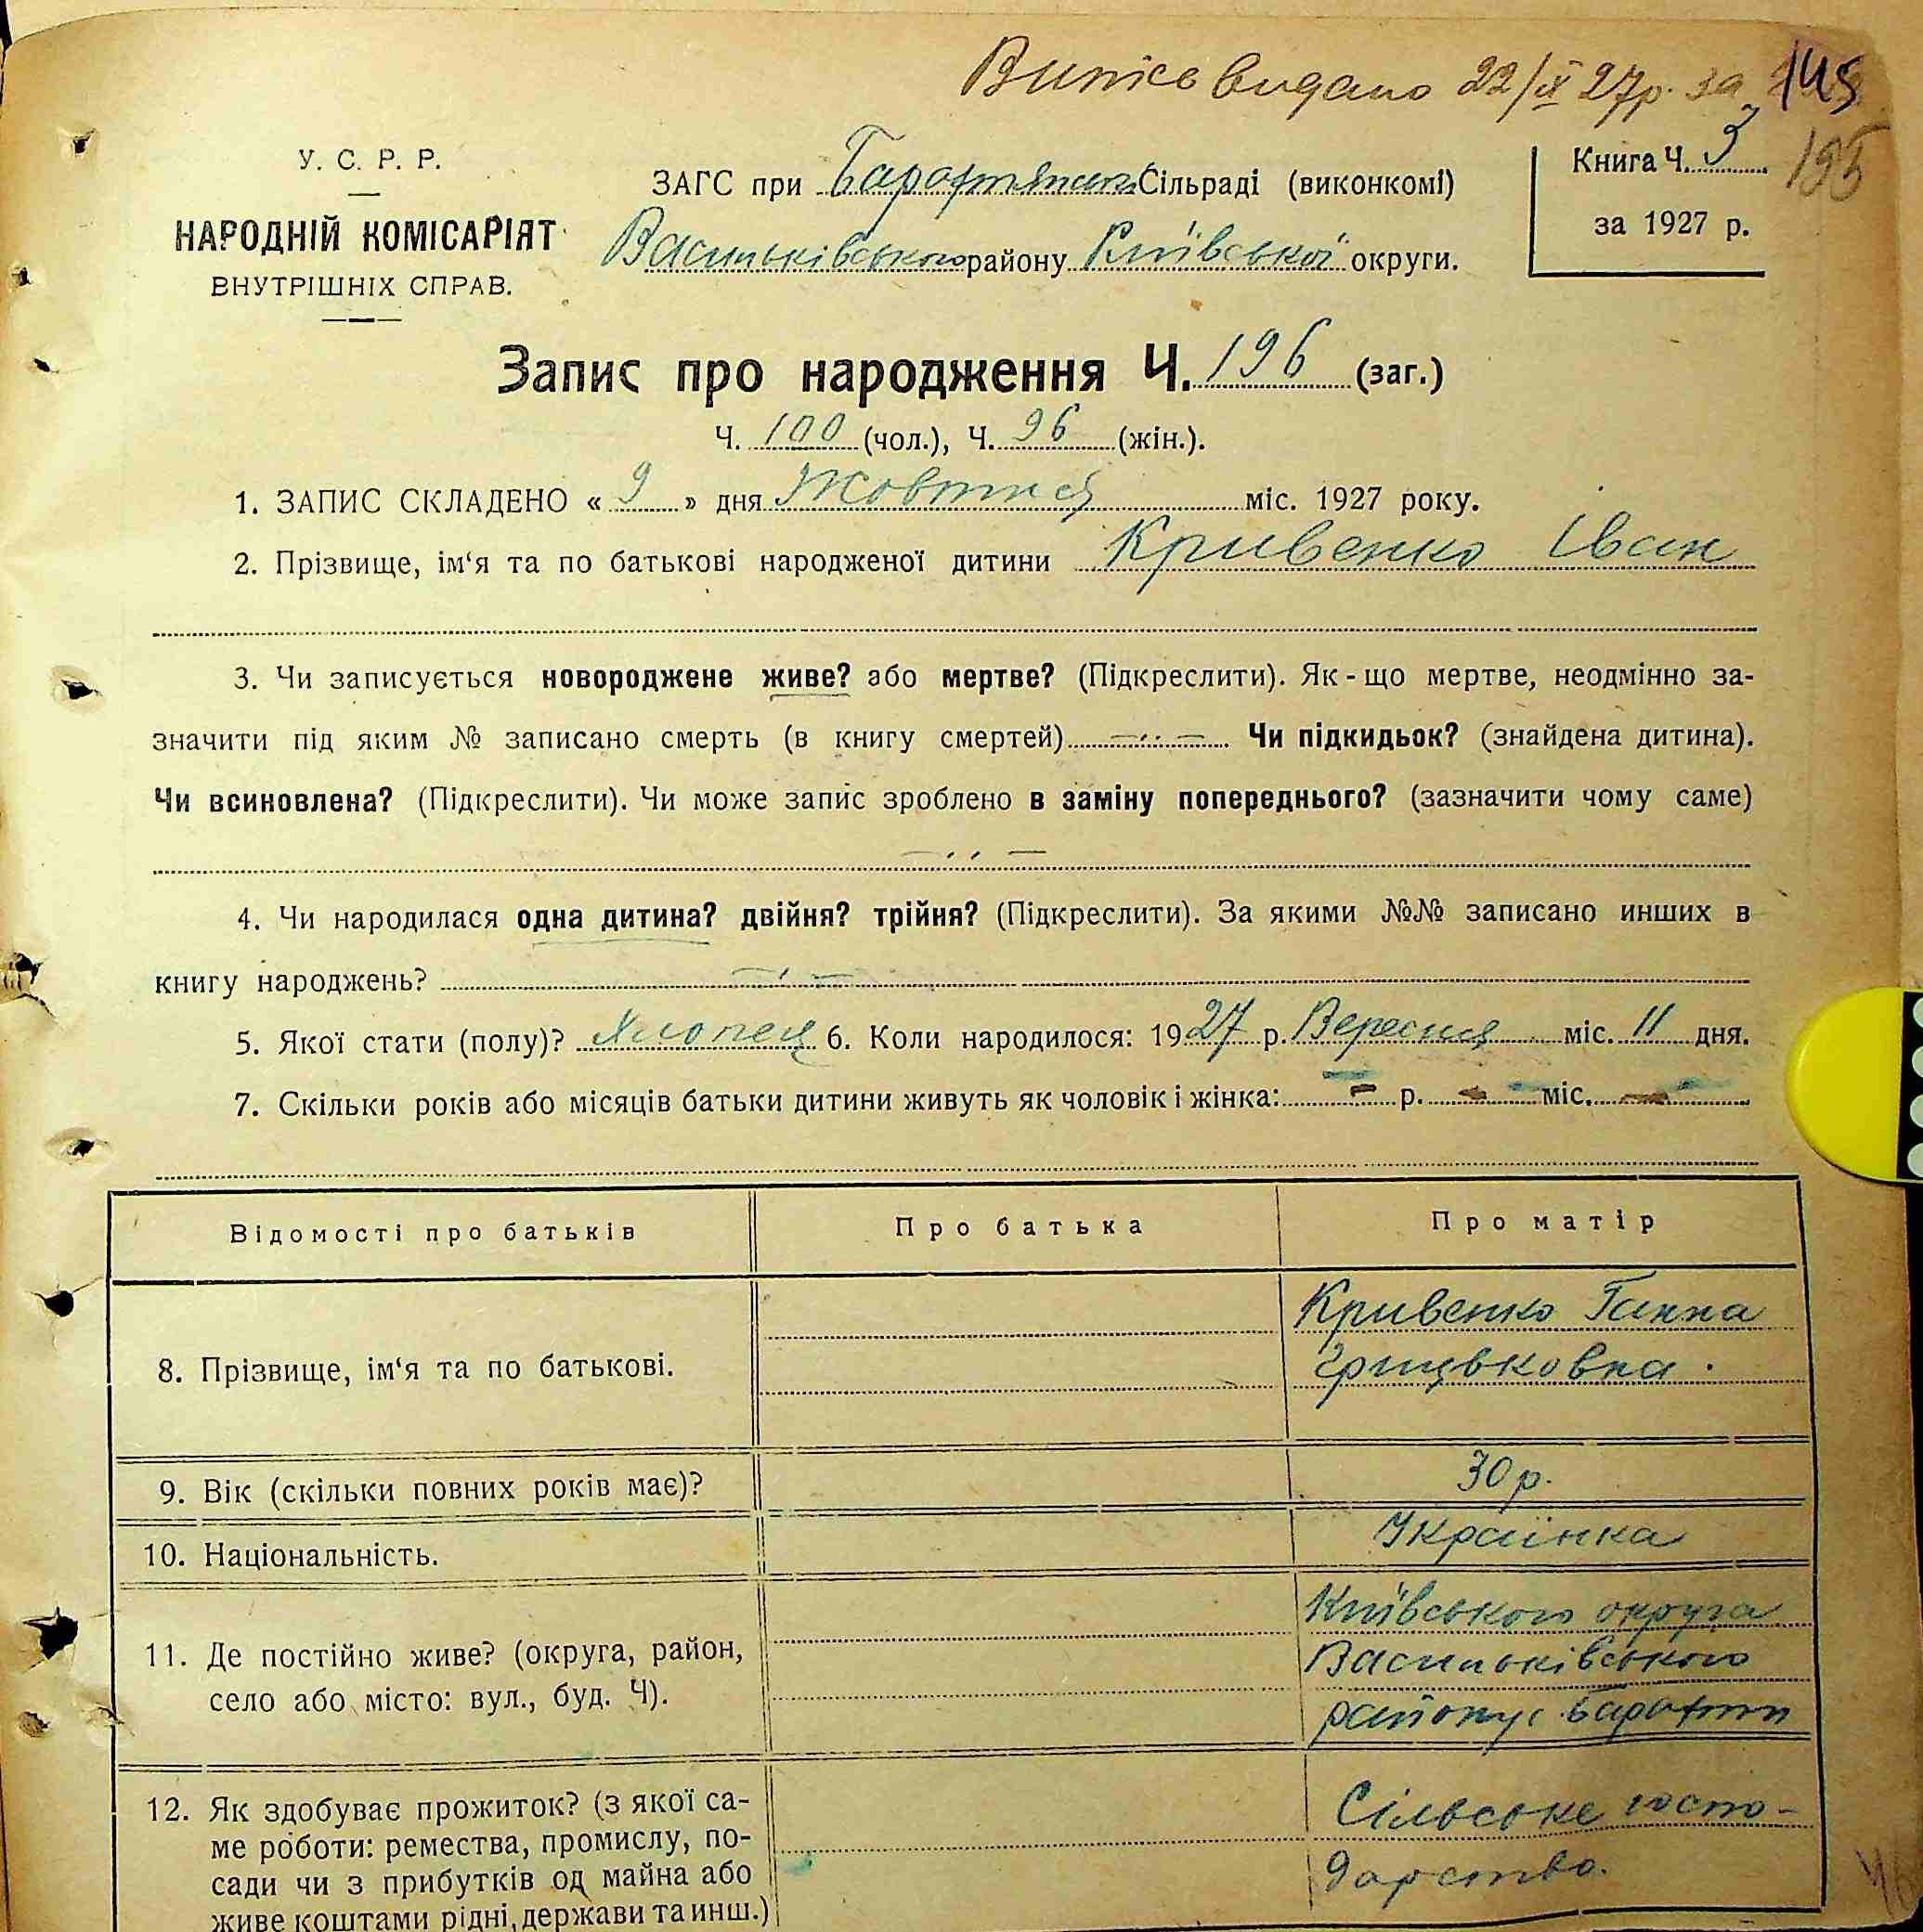 Випісь видано 22/IX 27р. за 145
195
У. С. Р. Р.
НАРОДНІЙ КОМІСАРІЯТ
ВНУТРІШНІХ СПРАВ.
ЗАГС при Барахтянській Сільраді (виконкомі)
Васильківського району Київської округи.
Книга Ч. 3
за 1927 р.
Запис про народження Ч. 196 (заг.)
Ч. 100 (чол.), Ч. 96 (жін.).
1. ЗАПИС СКЛАДЕНО « 9 » дня Жовтня міс. 1927 року.
2. Прізвище, ім‘я та по батькові народженої дитини Кривенко Іван
3. Чи записується новороджене живе? або мертве? (Підкреслити). Як-що мертве, неодмінно за-
значити під яким № записано смерть (в книгу смертей) Чи підкидьок? (знайдена дитина).
Чи всиновлена? (Підкреслити). Чи може запис зроблено в заміну попереднього? (зазначити чому саме)
4. Чи народилася одна дитина? двійня? трійня? (Підкреслити). За якими №№ записано инших в
книгу народжень?
5. Якої стати (полу)? Хлопець 6. Коли народилося: 1927 р. Вересня міс. 11 дня.
7. Скільки років або місяців батьки дитини живуть як чоловік і жінка: - р. - міс. -
Відомості про батьків
Про батька
Про матір
8. Прізвище, ім‘я та по батькові.
Кривенко Ганна
Грицьковна.
9. Вік (скільки повних років має)?
30 р.
10. Національність.
Українка
11. Де постійно живе? (округа, район,
село або місто: вул., буд. Ч).
Київського округа
Васильківського
району с.
12. Як здобуває прожиток? (з якої са-
ме роботи: ремества, промислу, по-
сади чи з прибутків од майна або
живе коштами рідні, держави та инш.)
Сільське госпо-
дарство.